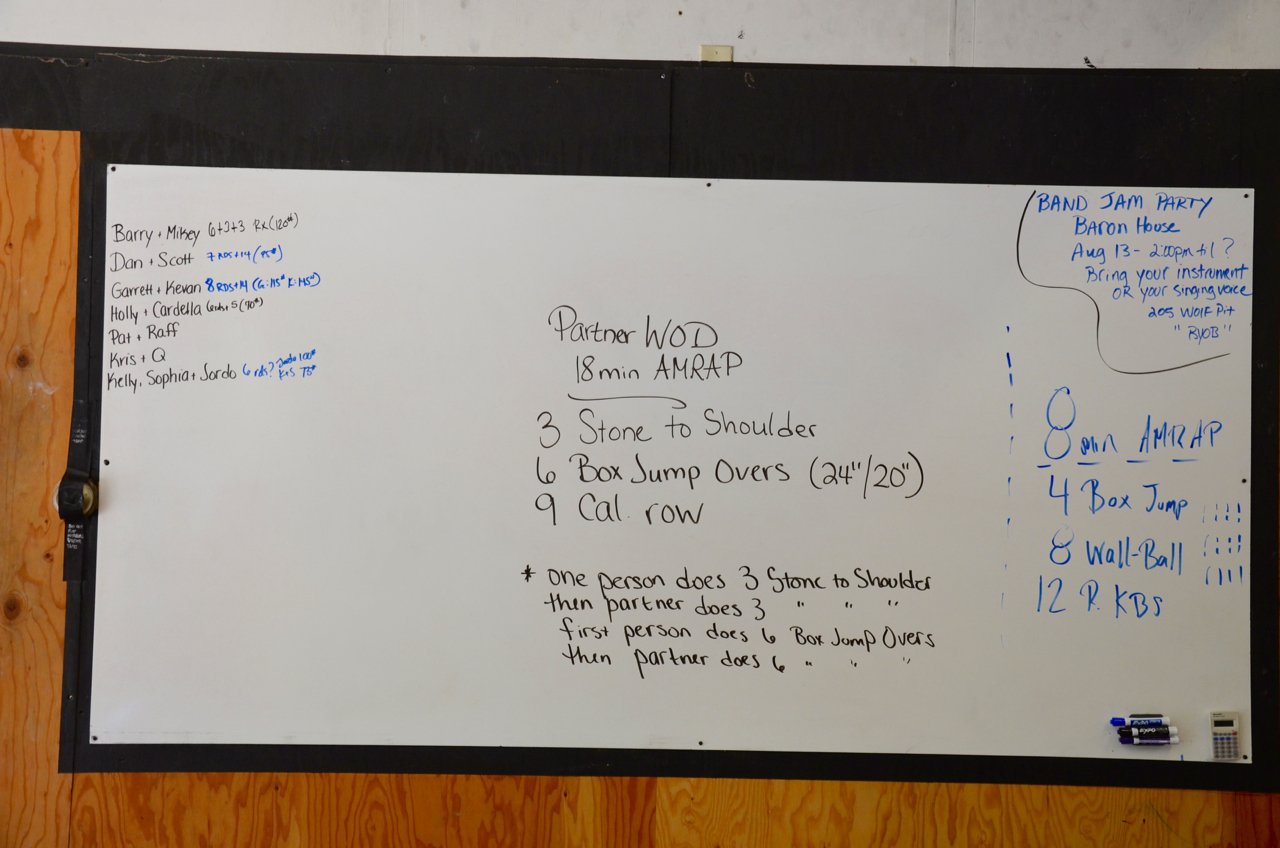 Barry + Mikey 6+3+3 Rx (120#)
Dan + Scott 7 RDS + 14 (95#)
Garrett + Kevan 8 RDS + 14 (G: 115# K: 145#)
Holly + Cardella 6 rds + 5 (70#)
Pat + Raff
Kris + Q
Kelly, Sophia + Jordo 6 rds? Jordo 100#
K+S 70#
Partner WOD
18 min AMRAP
3 Stone to Shoulder
6 Box Jump Overs (24"/20")
9 Cal. row
* one person does 3 Stone to Shoulder
then partner does 3 " " "
first person does 6 Box Jump Overs
then partner does 6 " " "
BAND JAM PARTY
Baron House
Aug 13 - 2:00pm til ?
Bring your instrument
OR your singing voice
205 WOlF Pit
"BYOB"
8 min AMRAP
4 Box Jump
8 Wall-Ball
12 R. KBS
EXPO